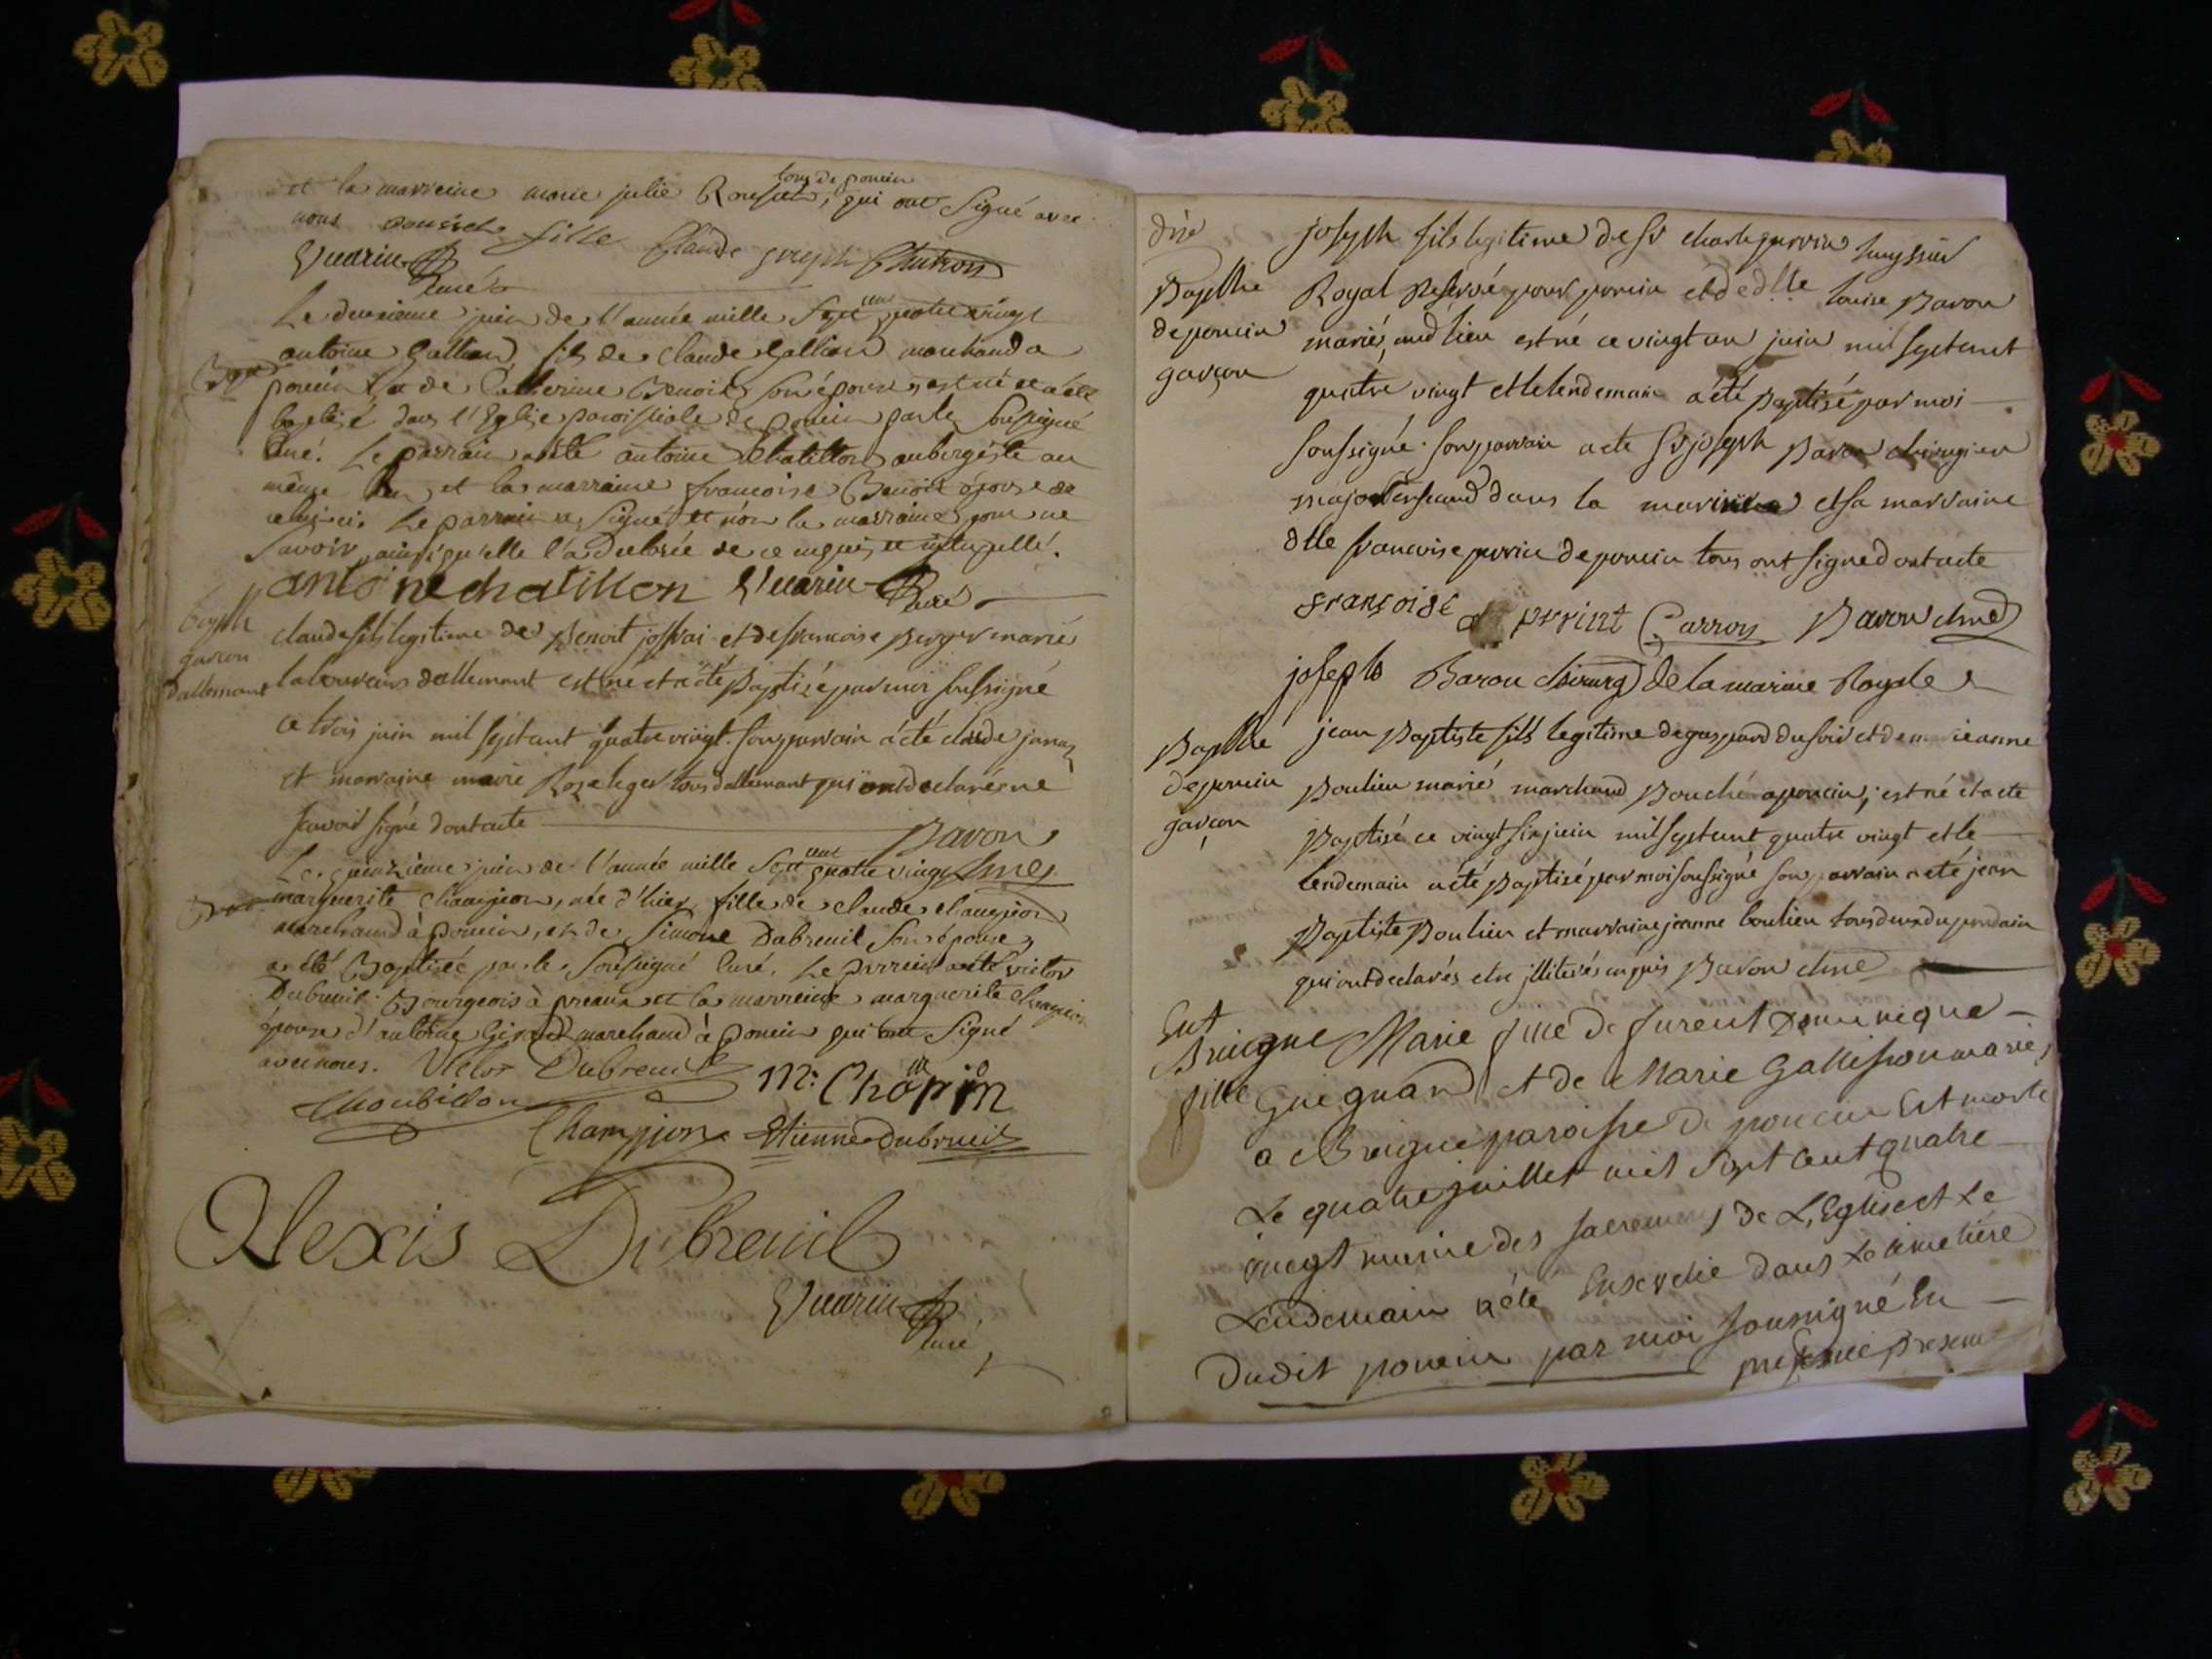 et la marreine marie julie Rousset, tous de poncin qui ont signé avec
nous rousset fille Claude joseph
Vuarin
curé
Le deuxieme juin de l'année mille sept cent quatre vingt
antoine Gallian fils de Claude Gallian marchand a
poncin et de Catherine Benoit son épouse, est né et a été
baptisé dans l'Eglise paroissiale de poncin par le soussigné
Curé. Le parrain a été antoine chatillon aubergiste au
même lieu et la marraine francoise Benoit épouse de
celui-ci. Le parrain a signé et non la marraine pour ne
savoir, ainsi qu'elle l'a declarée de ce enquis et interpellé.
antoine chatillon Vuarin Curé
Bapth
garcon
dallemant
claude fils legitime de Benoit joffrai et de francoise Berger marié
laboureurs dallemant est né et a été Baptisé par moi soussigné
ce trois juin mil septcent quatre vingt. son parrain a été claude
et marraine marie Rose leger tous dallemant qui ont declarés ne
scavoir signé dont acte
Baron
Le quinzieme juin de l'année mille sept cent quatre vingt
marguerite Champion, née d'hier, fille de claude champion
marchand à Poncin, et de Simone Dubreuil son épouse,
a été Baptisée par le soussigné Curé. Le parrein a été victor
Dubreuil Bourgeois à et la marreine marguerite
épouse d'antoine marchand à Poncin qui ont signé
avec nous. Victor Dubreuil
m: Chopin
Champion Etienne Dubreuil
Alexis Dubreuil
Vuarin
Curé
Bapthe
de poncin
garçon
joseph fils legitime de sr charle perrin huyssier
Royal Reservé pour poncin et de dlle louise Baron
mariés, aud lieu est né ce vingt un juin mil septcent
quatre vingt et le lendemain a été Baptisé par moi
soussigné. son parrain a été sr joseph Baron chirugien
major en second dans la marine et sa marraine
dlle francoise perrin de poncin tous ont signé dont acte
françoise perrin Carron Baron
joseph Baron chirurg de la marine Royale
Bapthe
de poncin
garçon
jean Baptiste fils legitime de gaspard et de
Boulieu marié marchand Bouché a poncin, est né et a été
Baptisé ce vingt six juin mil septcent quatre vingt et le
lendemain a été Baptisé par moi soussigné son parrain a été jean
Baptiste Boulieu et marraine jeanne boulieu tous deux
qui ont declarés etre jlliterés enquis Baron
Ent
fille
Marie fille de
et de Marie mariés
a paroisse de poncin Est morte
Le quatre juillet mil sept cent quatre
vingt munie des sacremens de L'Eglise et Le
Lendemain a été Ensevelie dans Le cimetière
Dudit poncin par moi soussigné En